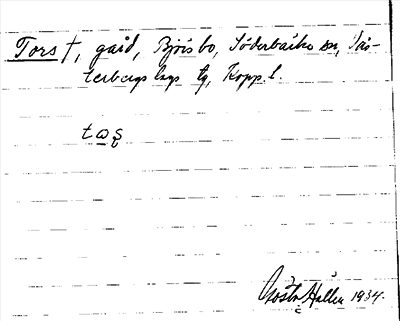 Tors †, gård, Björsbo, Söderbärke sn, Väs-
terbergslags tg, Kopp. l.
tɷʂ
Gösta Hallén 1934.